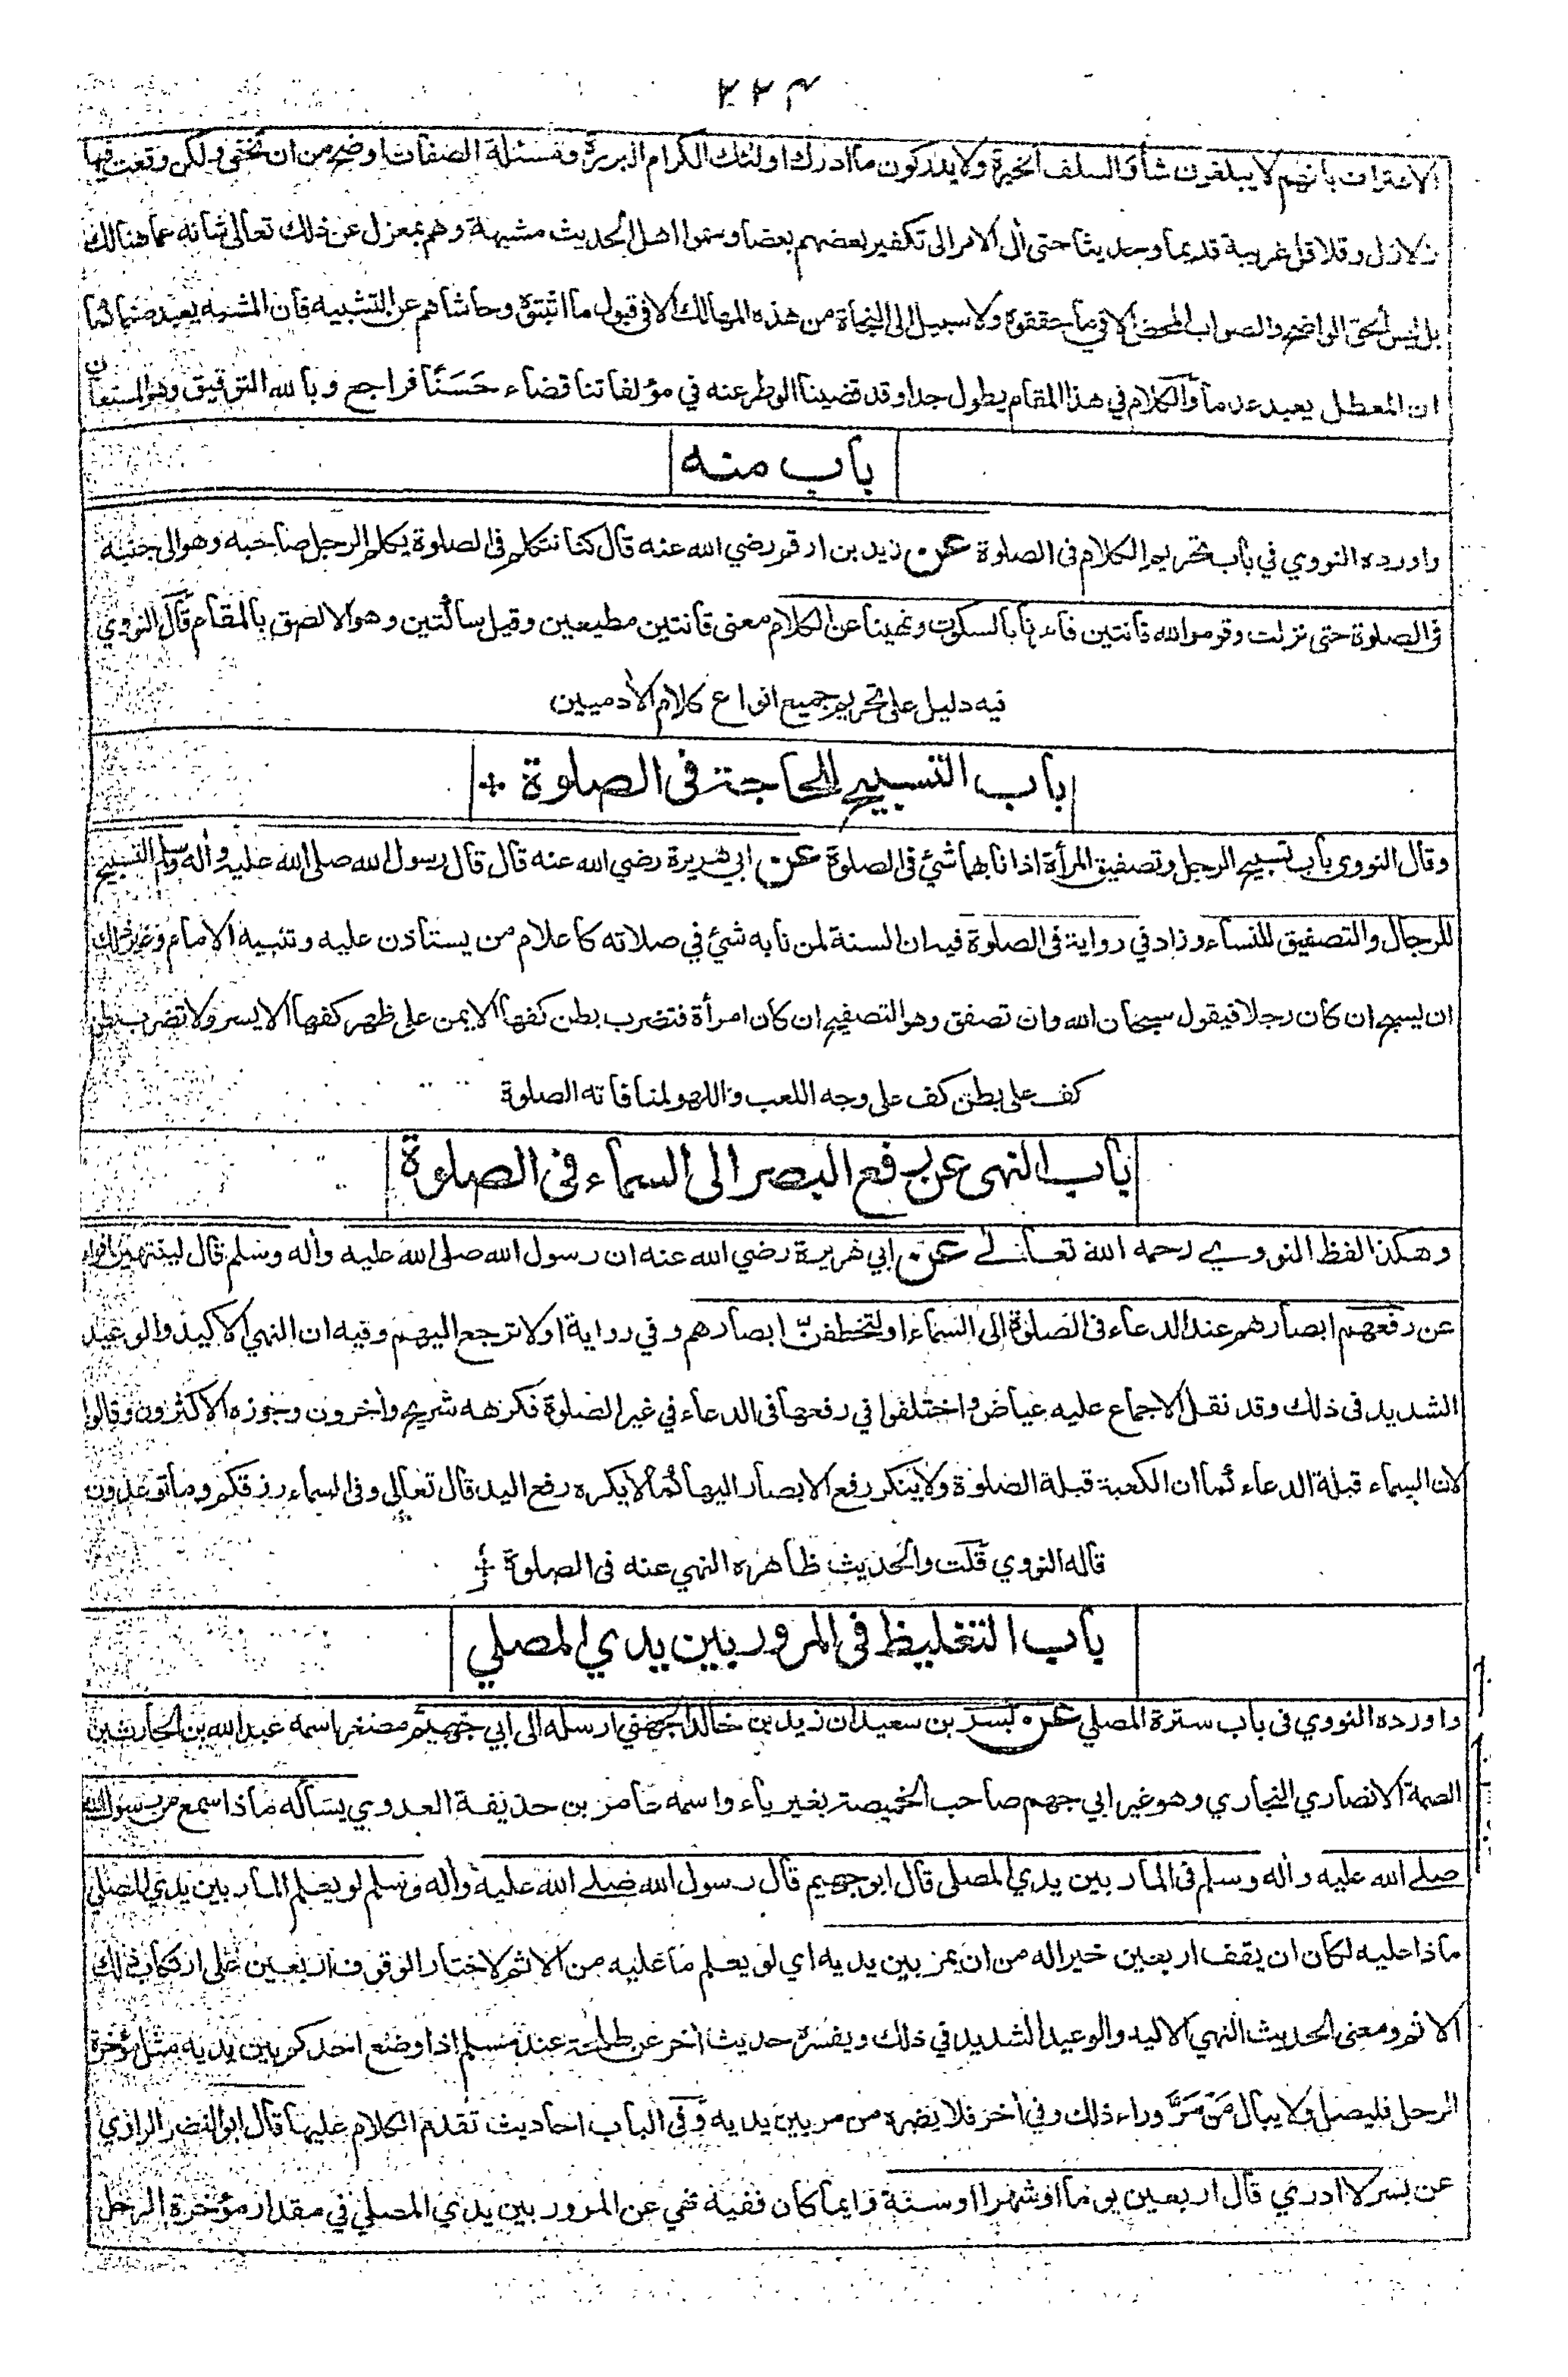 ٢٢٤
الاعتراف بانهم لا يبلغون شأو السلف الخيرة ولا يدركون ما ادرك اولئك الكرام البررة ومسئلة الصفات اوضح من ان تخفى ولكن وقعت فيها
زلازل وقلاقل غريبة قديما وحديثا حتى أل الامر الى تكفير بعضهم بعضا وسموا اهل الحديث مشبهة وهم بمعزل عن ذلك تعالى شانه عما هنالك
بل ليس الحق الواضح والصواب المحض الا في ما حققوه ولا سبيل الى النجاة من هذه المهالك الا في قبول ما اثبتوه وحاشاهم عن التشبيه فان المشبه يعبد صنما كما
ان المعطل يعبد عدما والكلام في هذا المقام يطول جدا وقد قضينا الوطر عنه في مؤلفاتنا قضاء حَسَنًا فراجع وبالله التوفيق وهو المستعان
باب منه
واورده النووي في باب تحريم الكلام فى الصلوة عن زيد بن ارقم رضي الله عنه قال كنا نتكلم فى الصلوة يكلم الرجل صاحبه وهو الى جنبه
فى الصلوة حتى نزلت وقوموا لله قانتين فامرنا بالسكوت ونهينا عن الكلام معنى قانتين مطيعين وقيل ساكتين وهو الالصق بالمقام قال النووي
فيه دليل على تحريم جميع انواع كلام الأدميين
باب التسبيح للحاجة فى الصلوة +
وقال النووي باب تسبيح الرجل وتصفيق المرأة اذا نابهما شئ فى الصلوة عن ابي هريرة رضي الله عنه قال قال رسول الله صلى الله عليه وأله وسلم التسبيح
للرجال والتصفيق للنساء وزاد في رواية فى الصلوة فيه ان السنة لمن نابه شئ في صلاته كاعلام من يستاذن عليه وتنبيه الامام وغير ذلك
ان يسبح ان كان رجلا فيقول سبحان الله وان تصفق وهو التصفيح ان كان امرأة فتضرب بطن كفها الايمن على ظهر كفها الايسر ولا تضرب بطن
كف على بطن كف على وجه اللعب واللهو لمنافاته الصلوة
باب النهى عن رفع البصر الى السماء فى الصلوة
وهكذا لفظ النووي رحمه الله تعالى عن ابي هريرة رضي الله عنه ان رسول الله صلى الله عليه وأله وسلم قال لينتهين اقوام
عن رفعهم ابصارهم عند الدعاء فى الصلوة الى السماء او لتخطفنّ ابصارهم وفي رواية او لا ترجع اليهم وفيه ان النهي الاكيد والوعيد
الشديد فى ذلك وقد نقل الاجماع عليه عياض واختلفوا في رفعها فى الدعاء في غير الصلوة فكرهه شريح وأخرون وجوزه الاكثرون وقالوا
لان السماء قبلة الدعاء كما ان الكعبة قبلة الصلوة ولا ينكر رفع الابصار اليها كما لا يكره رفع اليد قال تعالى وفى السماء رزقكم وما توعدون
قاله النووي قلت والحديث ظاهره النهي عنه فى الصلوة
باب التغليظ فى المرور بين يدي المصلي
واورده النووي فى باب سترة المصلي عن بسر بن سعيد ان زيد بن خالد الجهني ارسله الى ابي جهيم مصغرا اسمه عبد الله بن الحارث بن
الصمة الانصاري النجاري وهو غير ابي جهم صاحب الخميصة بغير ياء واسمه عامر بن حذيفة العدوي يسأله ماذا سمع من رسول الله
صلے الله عليه وأله وسلم فى المار بين يدي المصلى قال ابو جهيم قال رسول الله صلے الله عليه وأله وسلم لو يعلم المار بين يدي المصلي
ماذا عليه لكان ان يقف اربعين خيرا له من ان يمر بين يديه اي لو يعلم ما عليه من الاثم لاختار الوقوف اربعين على ارتكاب ذلك
الاثم ومعنى الحديث النهي الاكيد والوعيد الشديد في ذلك ويفسره حديث أخر عن طلحة عند مسلم اذا وضع احدكم بين يديه مثل مؤخرة
الرحل فليصل ولا يبال مَنْ مَرَّ وراء ذلك وفي أخر فلا يضره من مر بين يديه وفى الباب احاديث تقدم الكلام عليها قال ابو النضر الراوي
عن بسر لا ادري قال اربعين يوما او شهرا او سنة وايما كان ففيه نهي عن المرور بين يدي المصلي في مقدار مؤخرة الرحل